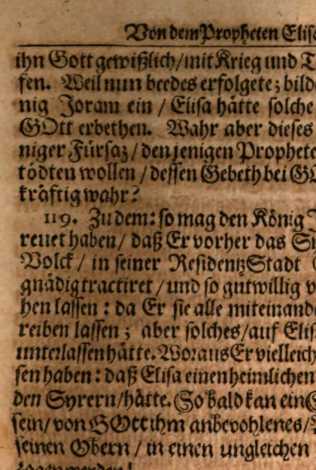 Von dem Propheten Elisa
ihn Gott gewißlich/mit Krieg und T
fen. Weil nun beedes erfolgete; bild
nig Joram ein / Elisa hätte solche
GOtt erbethen. Wahr aber dieses
niger Fürsaz / den jenigen Prophete
tödten wollen / dessen Gebeth bei GO
kräftig wahr?
119. Zu dem: so mag den König
reuet haben / daß Er vorher das Sy
Volck / in seiner ResidentzStadt
gnädig tractiret / und so gutwillig v
hen lassen : da Er sie alle miteinande
reiben lassen ; aber solches/auf Elis
unterlassen hätte. Woraus Er vielleich
sen haben: daß Elisa einen heimlichen
den Syrern/hätte. So bald kan ein
sein/von GOtt ihm anbevohlenes/
seinen Obern / in einen ungleichen